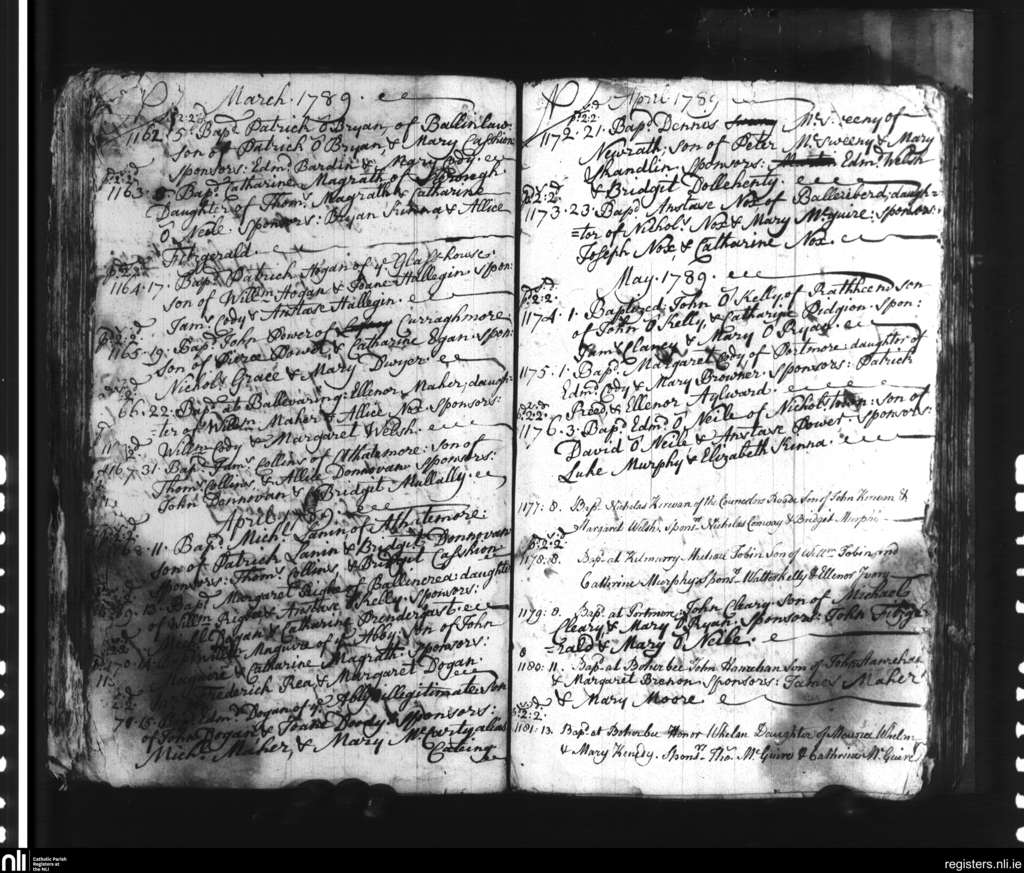 March 1789
2:2:d
1162. 5. Bapd Patrick O Bryan of Ballinlaw:
son of Patrick O Bryan & Mary Cashion
sponsors: Edmd Bardin & Mary Cody.
1163. 8. Bapd Catharine Magrath of
Daughter of Thoms. Magrath & Catharine
O Neile. Sponsors: Bryan Kinna & Allice
Fitzgerald
1164. 17. Bapd Patrick Hogan of ye Glasshouse
son of Willm Hogan & Joane Hallegin spon:
Jams. Cody & Anstase Hallegin.
1165. 19. Bapd John Power of Curraghmore
son of Pierce Power & Catharine Egan spon:
Nichols Grace & Mary Dwyer.
66. 22. Bapd at Ballevaring: Ellenor Maher; daugh:
=ter of Willm. Maher & Allice Nox Sponsors:
Willm Cody & Margaret Welsh.
1167. 31. Bapd Jams Collins of Athatemore: son of
Thoms Collins & Allice Donnovan Sponsors:
John Donnovan & Bridgit Mullally.
April 1789
11. Bapd Michl Lanin of Athatemore:
son of Patrick Lanin & Bridgit Donnovan
sponsors: Thoms. Collins & Bridgit Cashion
13. Bapd Margaret Righa of Ballencrea: daughter
of Willm Righa & Anstase Kelly. Sponsors:
Michl Dogan & Catharine Prendergast.
Maguire of Abby, son of John
Maguaire & Catharine Magrath. Sponsors:
Frederich Rea & Margaret Dogan.
15. Edmd Dogan of ye illegitimate son
of John Dogan & Joane Doody Sponsors:
Michl. Maher, & Mary McCarty, alias
April 1789
1172. 21. Bapd. Dennis McSweeny of
Newrath; son of Peter McSweeny & Mary
Shandlin, sponsors: Edmd. Welsh
& Bridgit Dollehenty.
1173. 23. Bapd Anstase Nox of Balleriberd; daugh=
=ter of Nichols. Nox & Mary McGuire: sponsors:
Joseph Nox, & Catharine Nox.
May 1789.
2:2:
1174. 1. Baptized John O Kelly, of Rathcend son
of John O Kelly, & Catharine Pidgion: Spon:
Jams Clancy & Mary O Ryan.
1175. 1. Bapd. Margaret Cody of Portmore daughter of
Edmd. Cody & Mary Browner. Sponsors: Patrick
Preed, & Ellenor Aylward.
1176. 3. Bapd Edmd. O Neile of Nichols.town: son of
David O Neile & Anstase Power. Sponsors:
Luke Murphy & Elizabeth Kinna.
1177: 8. Bapd. Nicholas Kirwan of the Councelors Roade Son of John Kirwan &
Margaret Welsh. Sponrs. Nicholas Conway & Bridget Murphi
2:2:
1178. 8. Bapd at Kilmurry Mathew Tobin son of Willm Tobin and
Catherine Murphy Sponrs. Walter Kelly & Ellenor
1179: 8. Bapd. at Portmore; John Cleary son of Michael
Cleary & Mary O Ryan. Sponsors: John Fitzge
=rald & Mary O Neile.
1180: 11. Bapd at Boherbee John Hanrehan son of John Hanrehan
& Margaret Brenon Sponsors: James Maher
& Mary Moore.
2:2:
1181: 13. Bapd. at Boherbee Honor Whelan Daughter of Maurice Whelan
& Mary Kenedy. Sponrs. Tho. McGuire & Catherine McGuire
nli
Catholic Parish
Registers at
the NLI
registers.nli.ie